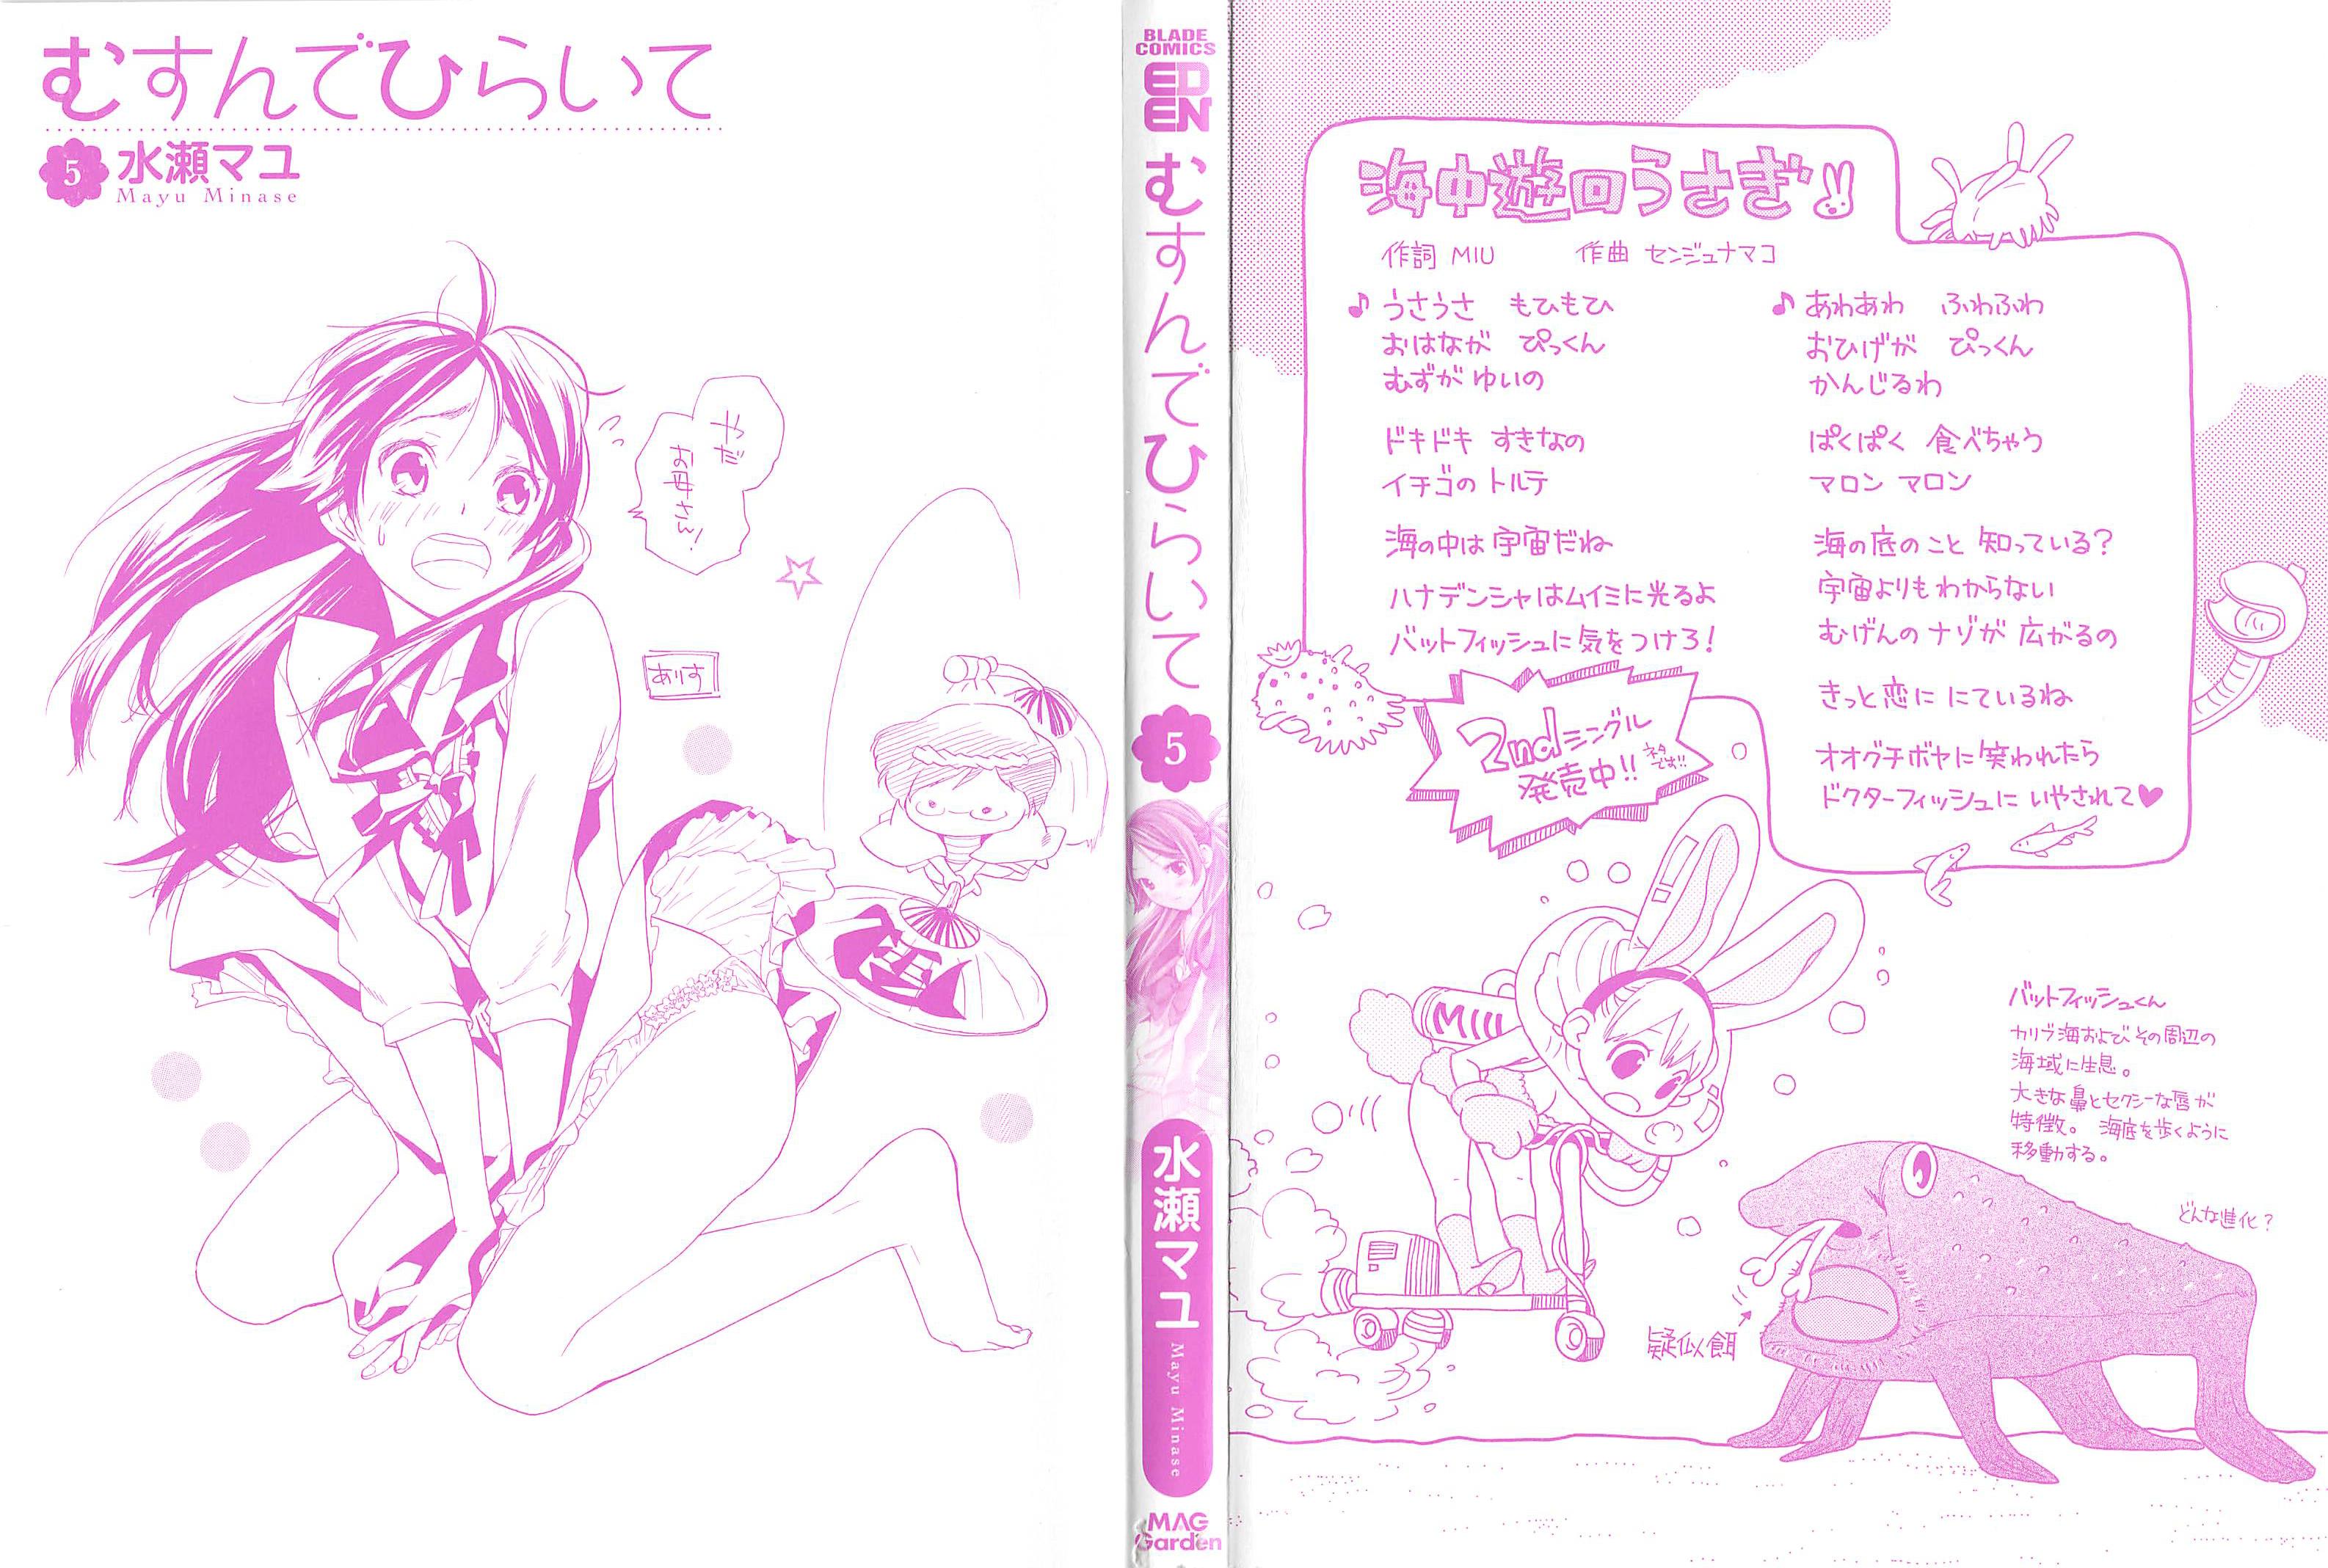 むすんでひらいて
5 水瀬マユ
Mayu Minase
やだ
お母さん!
ありす
BLADE
COMICS
EDEN
むすんでひらいて
5
水瀬マユ
Mayu Minase
MAG
Garden
海中遊回うさぎ
作詞 MIU 作曲 センジュナマコ
♪うさうさ もひもひ
おはなが ぴっくん
むずがゆいの
ドキドキ すきなの
イチゴの トルテ
海の中は 宇宙だね
ハナデンシャはムイミに光るよ
バットフィッシュに気をつけろ!
♪あわあわ ふわふわ
おひげが ぴっくん
かんじるわ
ぱくぱく 食べちゃう
マロン マロン
海の底のこと 知っている?
宇宙よりもわからない
むげんのナゾが 広がるの
きっと恋に にているね
オオグチボヤに笑われたら
ドクターフィッシュに いやされて♥
2ndシングル
発売中!!
ネタ
です!!
MIU
バットフィッシュくん
カリブ海およびその周辺の
海域に生息。
大きな鼻とセクシーな唇が
特徴。 海底を歩くように
移動する。
どんな進化?
疑似餌